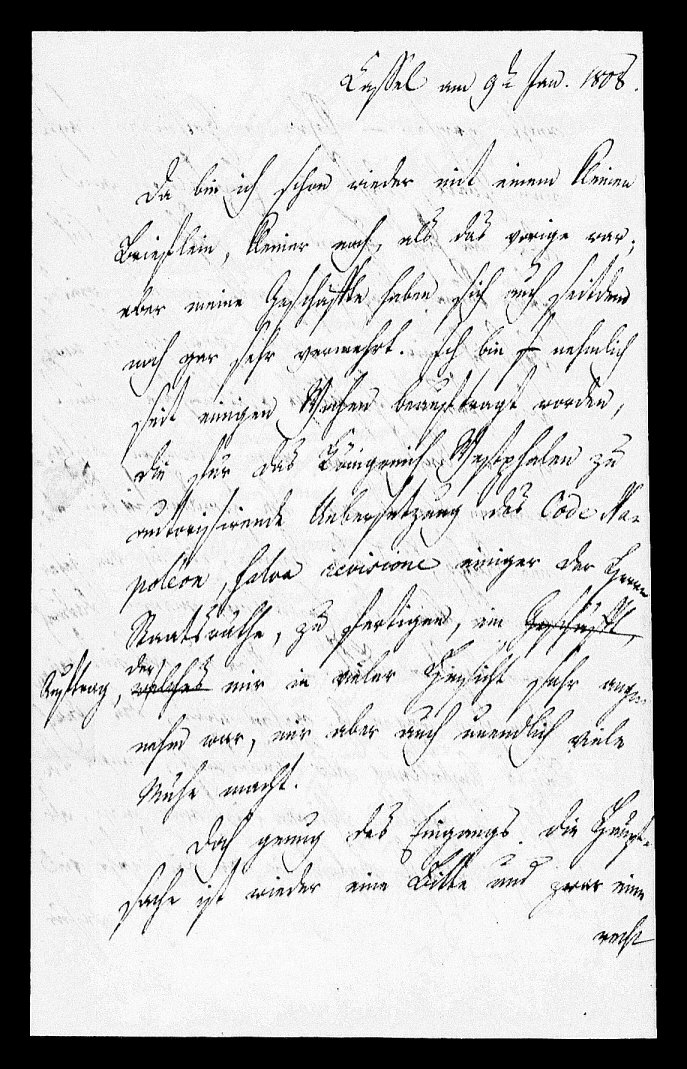 Cassel am 9t Jan. 1808.
Da bin ich schon wieder mit einem kleinen
Brieflein, kleiner noch, als das vorige war;
aber meine Geschäfte haben sich auch seitdem
noch gar sehr vermehrt. Ich bin nehmlich
seit einigen Wochen beauftragt worden,
die für das Königreich Westphalen zu
autorisirende Uebersetzung des Code Na-
poléon, salva revisione einiger der Herrn
Staatsräthe, zu fertigen, ein Geschäft,
Auftrag, welches der mir in vieler Hinsicht sehr ange-
nehm war, mir aber auch unendlich viele
Mühe macht.
Doch genug des Eingangs. Die Haupt-
sache ist wieder eine Bitte und zwar eine
recht